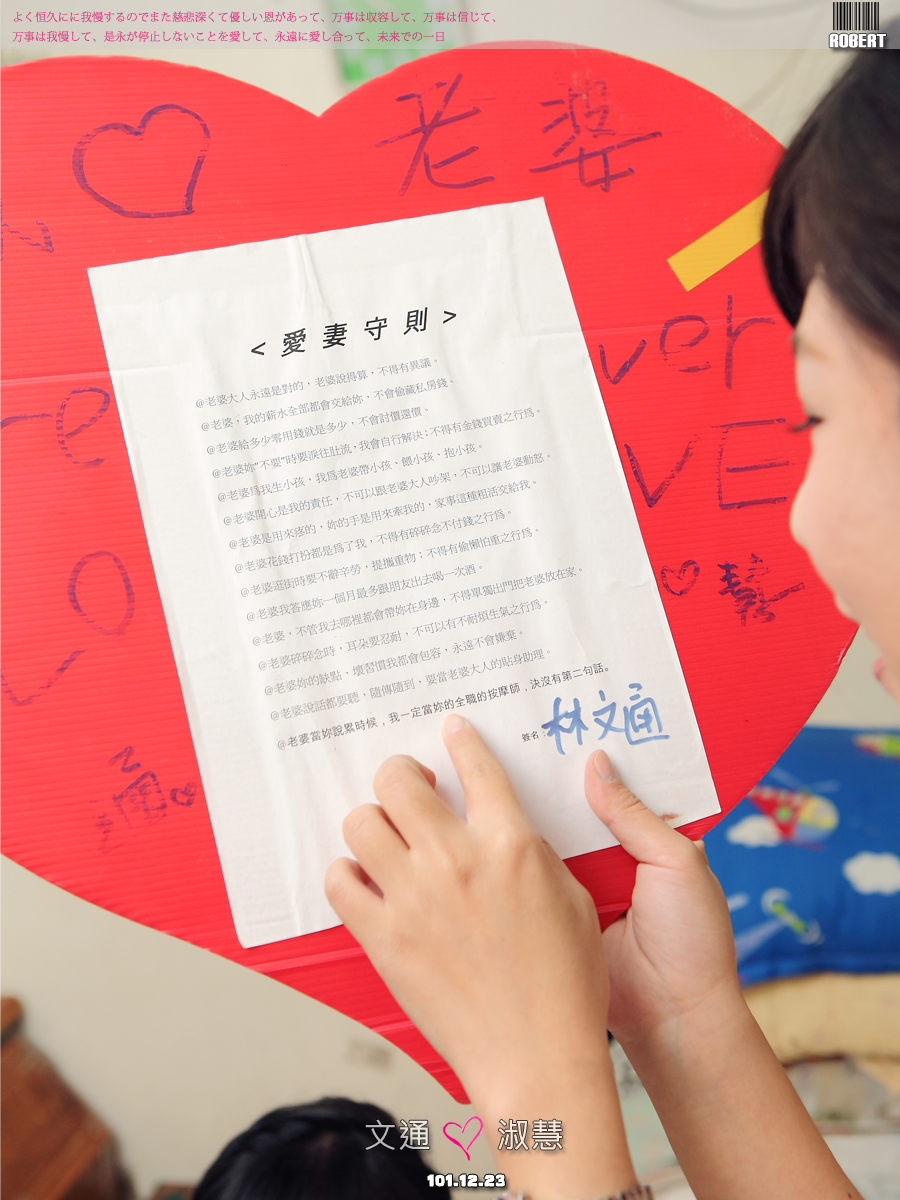 よく恒久にに我慢するのでまた慈悲深くて優しい恩があって、万事は収容して、万事は信じて、
万事は我慢して、是永が停止しないことを愛して、永遠に愛し合って、未来での一日
ROBERT
老婆
<愛妻守則>
@老婆大人永遠是對的，老婆說得算，不得有異議。
@老婆，我的薪水全部都會交給妳，不會偷藏私房錢。
@老婆給多少零用錢就是多少，不會討價還價。
@老婆妳"不要"時要淚往肚流，我會自行解決；不得有金錢買賣之行爲。
@老婆爲我生小孩，我爲老婆帶小孩、餵小孩、抱小孩。
@老婆開心是我的責任，不可以跟老婆大人吵架，不可以讓老婆動怒。
@老婆是用來疼的，妳的手是用來牽我的，家事這種粗活交給我。
@老婆花錢打扮都是爲了我，不得有碎碎念不付錢之行爲。
@老婆逛街時要不辭辛勞，提攜重物；不得有偷懶怕重之行爲。
@老婆我答應妳一個月最多跟朋友出去喝一次酒。
@老婆，不管我去哪裡都會帶妳在身邊，不得單獨出門把老婆放在家。
@老婆碎碎念時，耳朵要忍耐，不可以有不耐煩生氣之行爲。
@老婆妳的缺點，壞習慣我都會包容，永遠不會嫌棄。
@老婆說話都要聽，隨傳隨到，要當老婆大人的貼身助理。
@老婆當妳說累時候，我一定當妳的全職的按摩師，決沒有第二句話。
簽名：林文通
ver
re
VE
LO
通
文通 淑慧
101.12.23